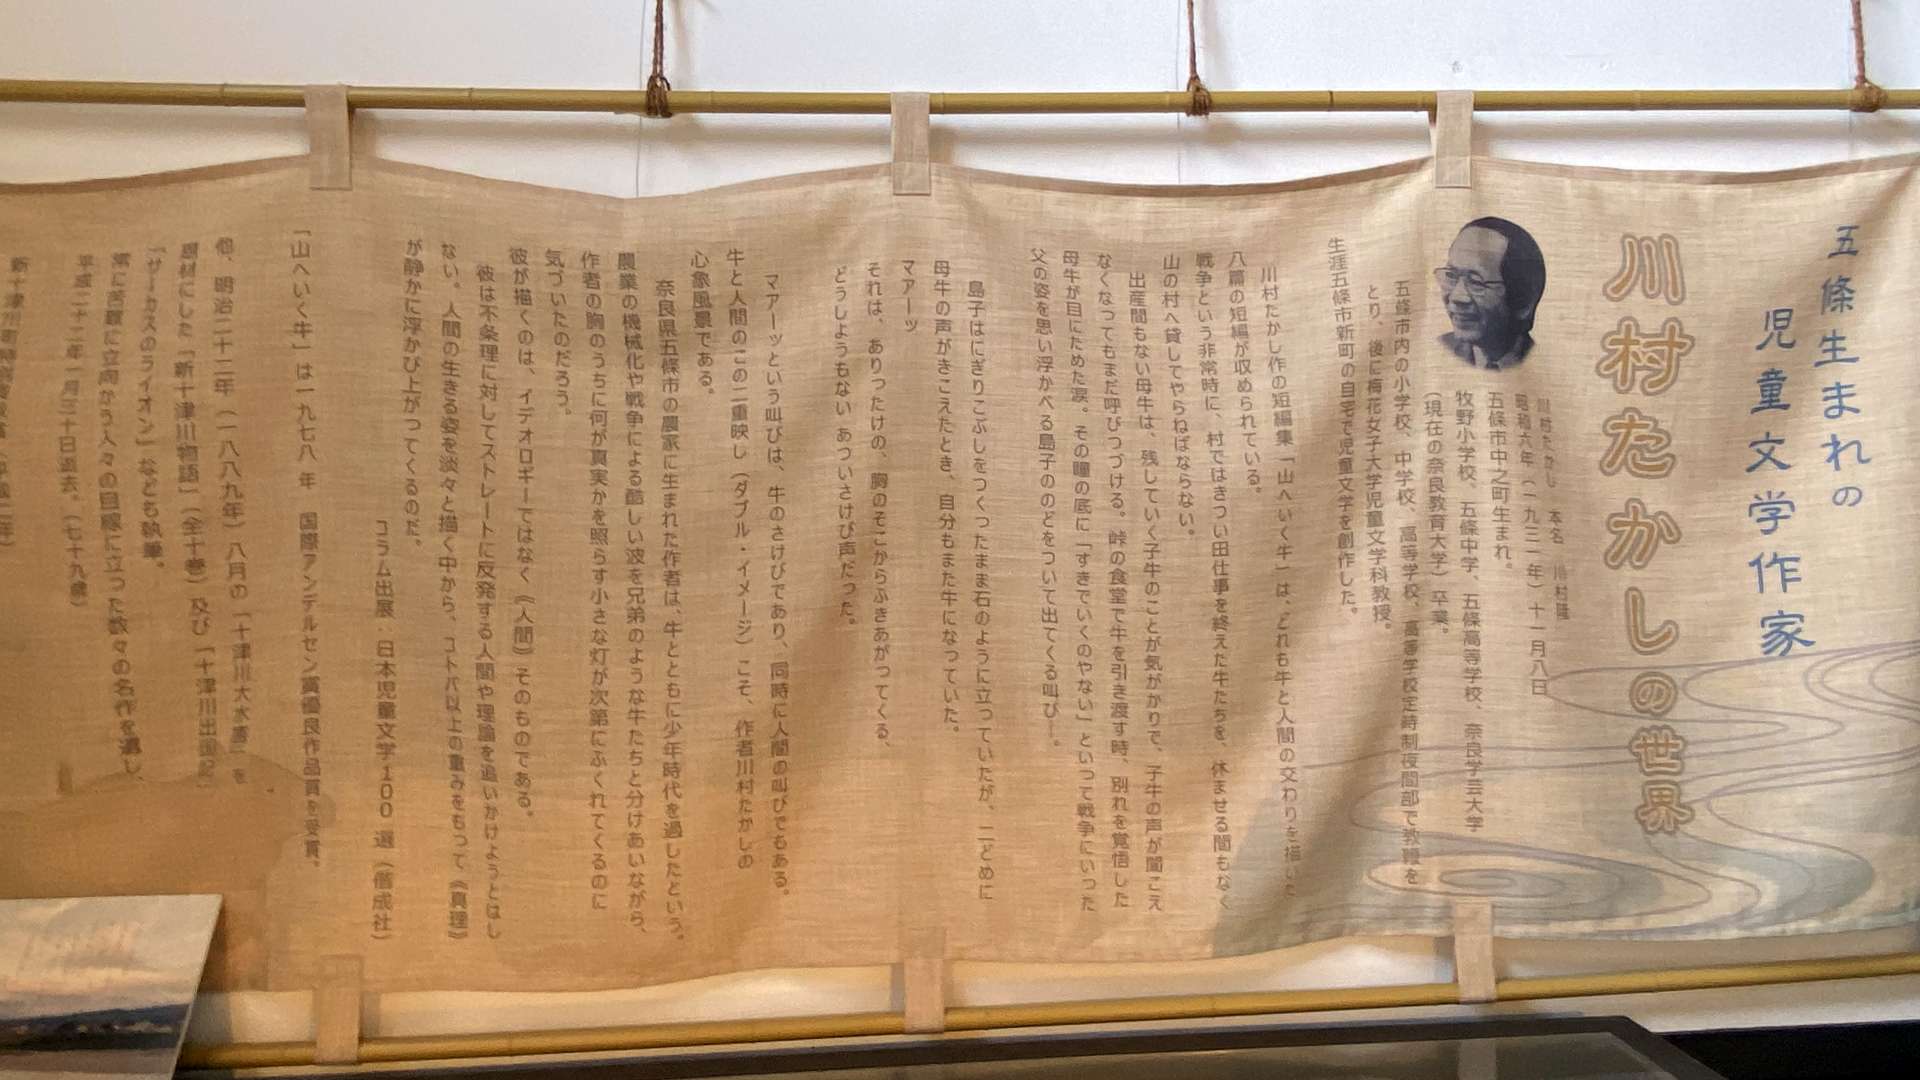 五條生まれの
児童文学作家
川村たかしの世界
川村たかし 本名 川村隆
昭和六年(一九三一年)十一月八日
五條市中之町生まれ。
牧野小学校、五條中学、五條高等学校、奈良学芸大学
(現在の奈良教育大学)卒業。
五條市内の小学校、中学校、高等学校、高等学校定時制夜間部で教鞭を
とり、後に梅花女子大学児童文学科教授。
生涯五條市新町の自宅で児童文学を創作した。
川村たかし作の短編集「山へいく牛」は、どれも牛と人間の交わりを描いた
八篇の短編が収められている。
戦争という非常時に、村ではきつい田仕事を終えた牛たちを、休ませる間もなく
山の村へ貸してやらねばならない。
出産間もない母牛は、残していく子牛のことが気がかりで、子牛の声が聞こえ
なくなってもまだ呼びつづける。峠の食堂で牛を引き渡す時、別れを覚悟した
母牛が目にためた涙。その瞳の底に「すきでいくのやない」といって戦争にいった
父の姿を思い浮かべる島子ののどをついて出てくる叫び―。
島子はにぎりこぶしをつくったまま石のように立っていたが、二どめに
母牛の声がきこえたとき、自分もまた牛になっていた。
マアーッ
それは、ありったけの、胸のそこからふきあがってくる、
どうしようもない あついさけび声だった。
マアーッという叫びは、牛のさけびであり、同時に人間の叫びでもある。
牛と人間のこの二重映し(ダブル・イメージ)こそ、作者川村たかしの
心象風景である。
奈良県五條市の農家に生まれた作者は、牛とともに少年時代を過したという。
農業の機械化や戦争による酷しい波を兄弟のような牛たちと分けあいながら、
作者の胸のうちに何が真実かを照らす小さな灯が次第にふくれてくるのに
気づいたのだろう。
彼が描くのは、イデオロギーではなく《人間》そのものである。
彼は不条理に対してストレートに反発する人間や理論を追いかけようとはし
ない。人間の生きる姿を淡々と描く中から、コトバ以上の重みをもって、《真理》
が静かに浮かび上がってくるのだ。
コラム出展 日本児童文学100選(偕成社)
「山へいく牛」は一九七八年 国際アンデルセン賞優良作品賞を受賞。
他、明治二十二年(一八八九年)八月の「十津川大水害」を
題材にした「新十津川物語」(全十巻)及び「十津川出国記」
「サーカスのライオン」なども執筆。
常に苦難に立向かう人々の目線に立った数々の名作を遺し、
平成二十二年一月三十日逝去。(七十九歳)